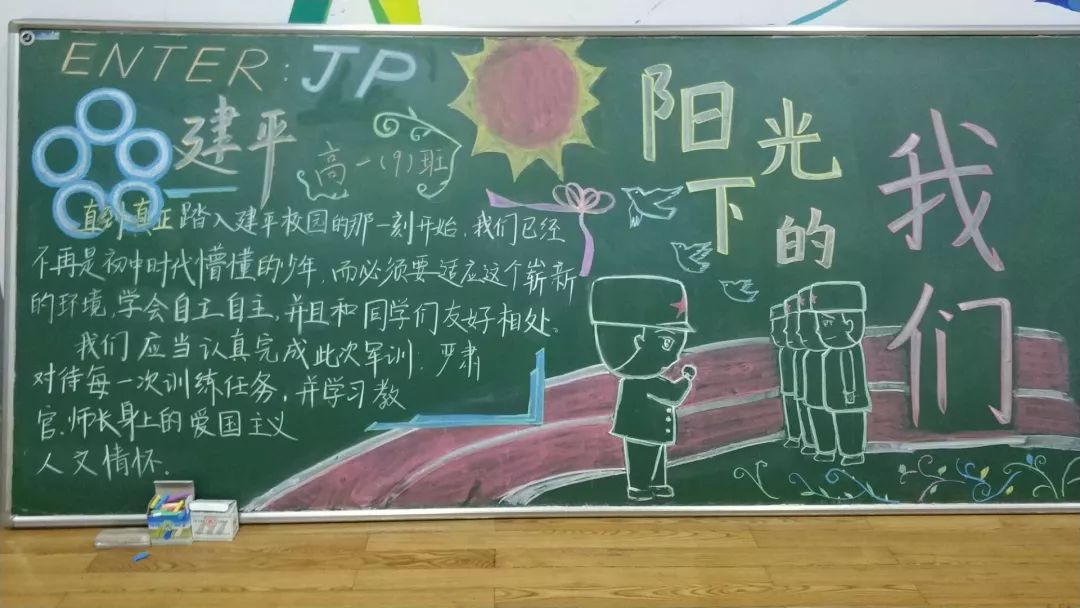 ENTER: JP
建平
高一(9)班
直到真正踏入建平校园的那一刻开始,我们已经
不再是初中时代懵懂的少年,而必须要适应这个崭新
的环境,学会自主自主,并且和同学们友好相处。
我们应当认真完成此次军训:严肃
对待每一次训练任务,并学习教
官.师长身上的爱国主义
人文情怀.
阳光
下的
我们